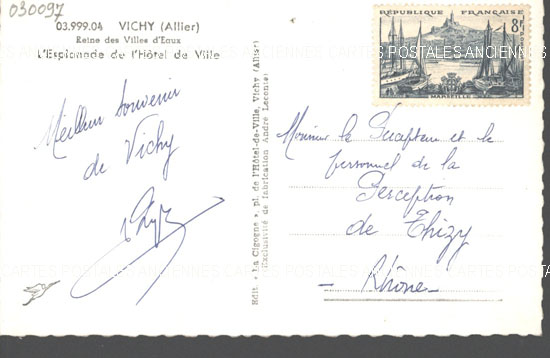 030097
03.999.04 VICHY (Allier)
Reine des Villes d'Eaux
L'Esplanade de l'Hôtel de Ville
Meilleur souvenir
de Vichy
Edit. « La Cigogne », pl. de l'Hôtel-de-Ville, Vichy (Allier)
(Exclusivité de fabrication André Leconte)
REPUBLIQUE FRANÇAISE
8F
POSTES
MARSEILLE
Monsieur le Percepteur et le
personnel de la
Perception
de Thizy
- Rhône -
CARTES POSTALES ANCIENNES